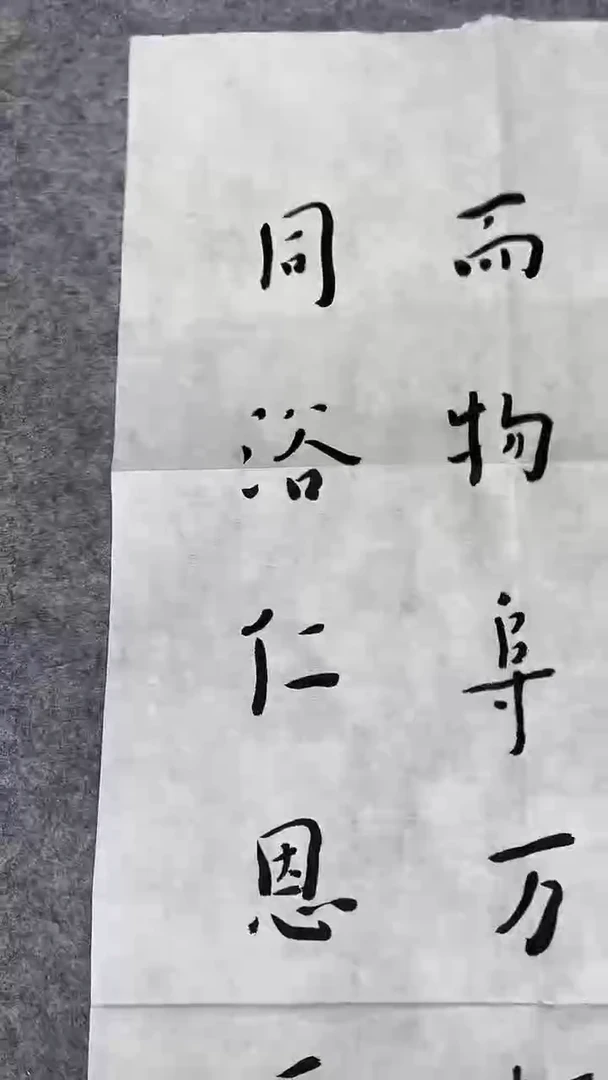 而物阜万
同浴仁恩